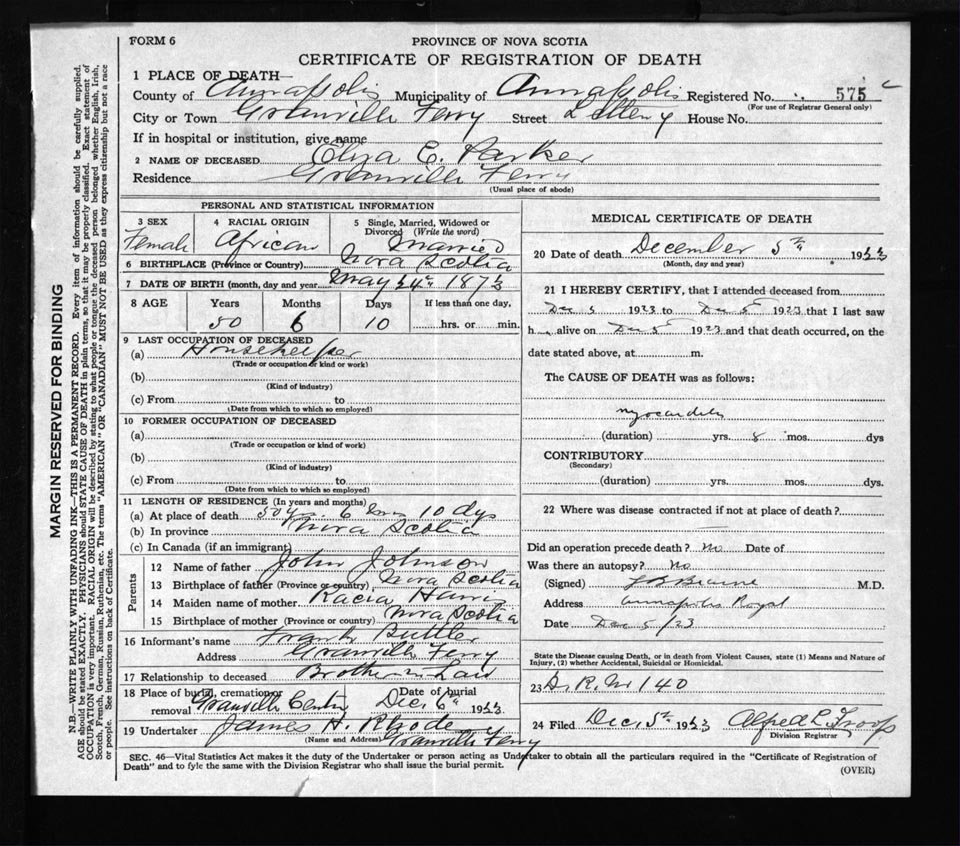 FORM 6
PROVINCE OF NOVA SCOTIA
CERTIFICATE OF REGISTRATION OF DEATH
1 PLACE OF DEATH—
County of Annapolis Municipality of Annapolis Registered No. 575
(For use of Registrar General only)
City or Town Granville Ferry Street House No.
If in hospital or institution, give name
2 NAME OF DECEASED Eliza E. Parker
Residence Granville Ferry
(Usual place of abode)
PERSONAL AND STATISTICAL INFORMATION
3 SEX
Female
4 RACIAL ORIGIN
African
5 Single, Married, Widowed or
Divorced (Write the word)
Married
6 BIRTHPLACE (Province or Country) Nova Scotia
7 DATE OF BIRTH (month, day and year) May 24th 1873
8 AGE Years Months Days If less than one day,
50 6 10 hrs. or min.
9 LAST OCCUPATION OF DECEASED
(a) Housekeeper
(Trade or occupation or kind or work)
(b)
(Kind of industry)
(c) From to
(Date from which to which so employed)
10 FORMER OCCUPATION OF DECEASED
(a)
(Trade or occupation or kind of work)
(b)
(Kind of industry)
(c) From to
(Date from which to which so employed)
11 LENGTH OF RESIDENCE (In years and months)
(a) At place of death 50 yrs. 6 10 dys
(b) In province Nova Scotia
(c) In Canada (if an immigrant)
Parents
12 Name of father John Johnson
13 Birthplace of father (Province or country) Nova Scotia
14 Maiden name of mother Harris
15 Birthplace of mother (Province or country) Nova Scotia
16 Informant's name Frank Buttler
Address Granville Ferry
17 Relationship to deceased Brother in Law
18 Place of burial, cremation or
removal Granville Centre
Date of burial
Dec. 6th 1923
19 Undertaker James H. Rhode
(Name and Address) Granville Ferry
MEDICAL CERTIFICATE OF DEATH
20 Date of death December 5th 1923
(Month, day and year)
21 I HEREBY CERTIFY, that I attended deceased from
Dec 5 1923 to Dec 5 1923 that I last saw
h alive on Dec 5 1923 and that death occurred, on the
date stated above, at m.
The CAUSE OF DEATH was as follows:
myocarditis
(duration) yrs. 8 mos. dys
CONTRIBUTORY
(Secondary)
(duration) yrs. mos. dys.
22 Where was disease contracted if not at place of death?
Did an operation precede death? no Date of
Was there an autopsy? No
(Signed) M.D.
Address Annapolis Royal
Date Dec 5/23
State the Disease causing Death, or in death from Violent Causes, state (1) Means and Nature of
Injury, (2) whether Accidental, Suicidal or Homicidal.
23 D. R. No 140
24 Filed Dec. 5th 1923 Alfred L. Troop
Division Registrar
SEC. 46—Vital Statistics Act makes it the duty of the Undertaker or person acting as Undertaker to obtain all the particulars required in the "Certificate of Registration of
Death" and to fyle the same with the Division Registrar who shall issue the burial permit.
(OVER)
MARGIN RESERVED FOR BINDING
N.B.—WRITE PLAINLY WITH UNFADING INK—THIS IS A PERMANENT RECORD. Every item of information should be carefully supplied.
AGE should be stated EXACTLY. PHYSICIANS should STATE CAUSE OF DEATH in plain terms, so that it may be properly classified. Exact statement of
OCCUPATION is very important. RACIAL ORIGIN will be described by stating to what people or tongue the deceased person belonged whether English, Irish,
Scotch, French, German, Russian, Ruthenian, etc. The terms "AMERICAN" OR "CANADIAN" MUST NOT BE USED as they express citizenship but not a race
or people. See instructions on back of Certificate.